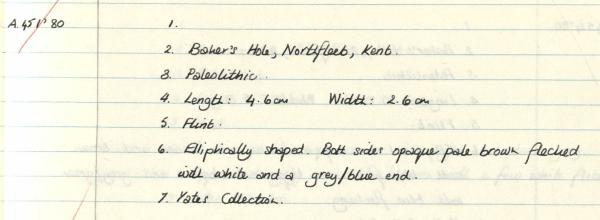 A.451'80 1.
2. Baker's Hole, Northfleet, Kent.
3. Paleolithic.
4. Length: 4.6cm Width: 2.6cm
5. Flint.
6. Elliptically shaped. Both sides opaque pale brown flecked
with white and a grey/blue end.
7. Yates Collection.